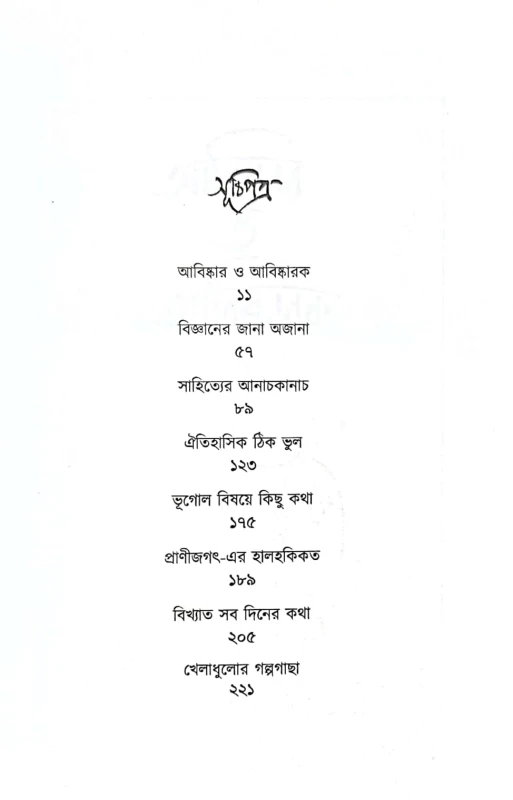 সূচিপত্র
আবিষ্কার ও আবিষ্কারক
১১
বিজ্ঞানের জানা অজানা
৫৭
সাহিত্যের আনাচকানাচ
৮৯
ঐতিহাসিক ঠিক ভুল
১২৩
ভূগোল বিষয়ে কিছু কথা
১৭৫
প্রাণীজগৎ-এর হালহকিকত
১৮৯
বিখ্যাত সব দিনের কথা
২০৫
খেলাধুলোর গল্পগাছা
২২১